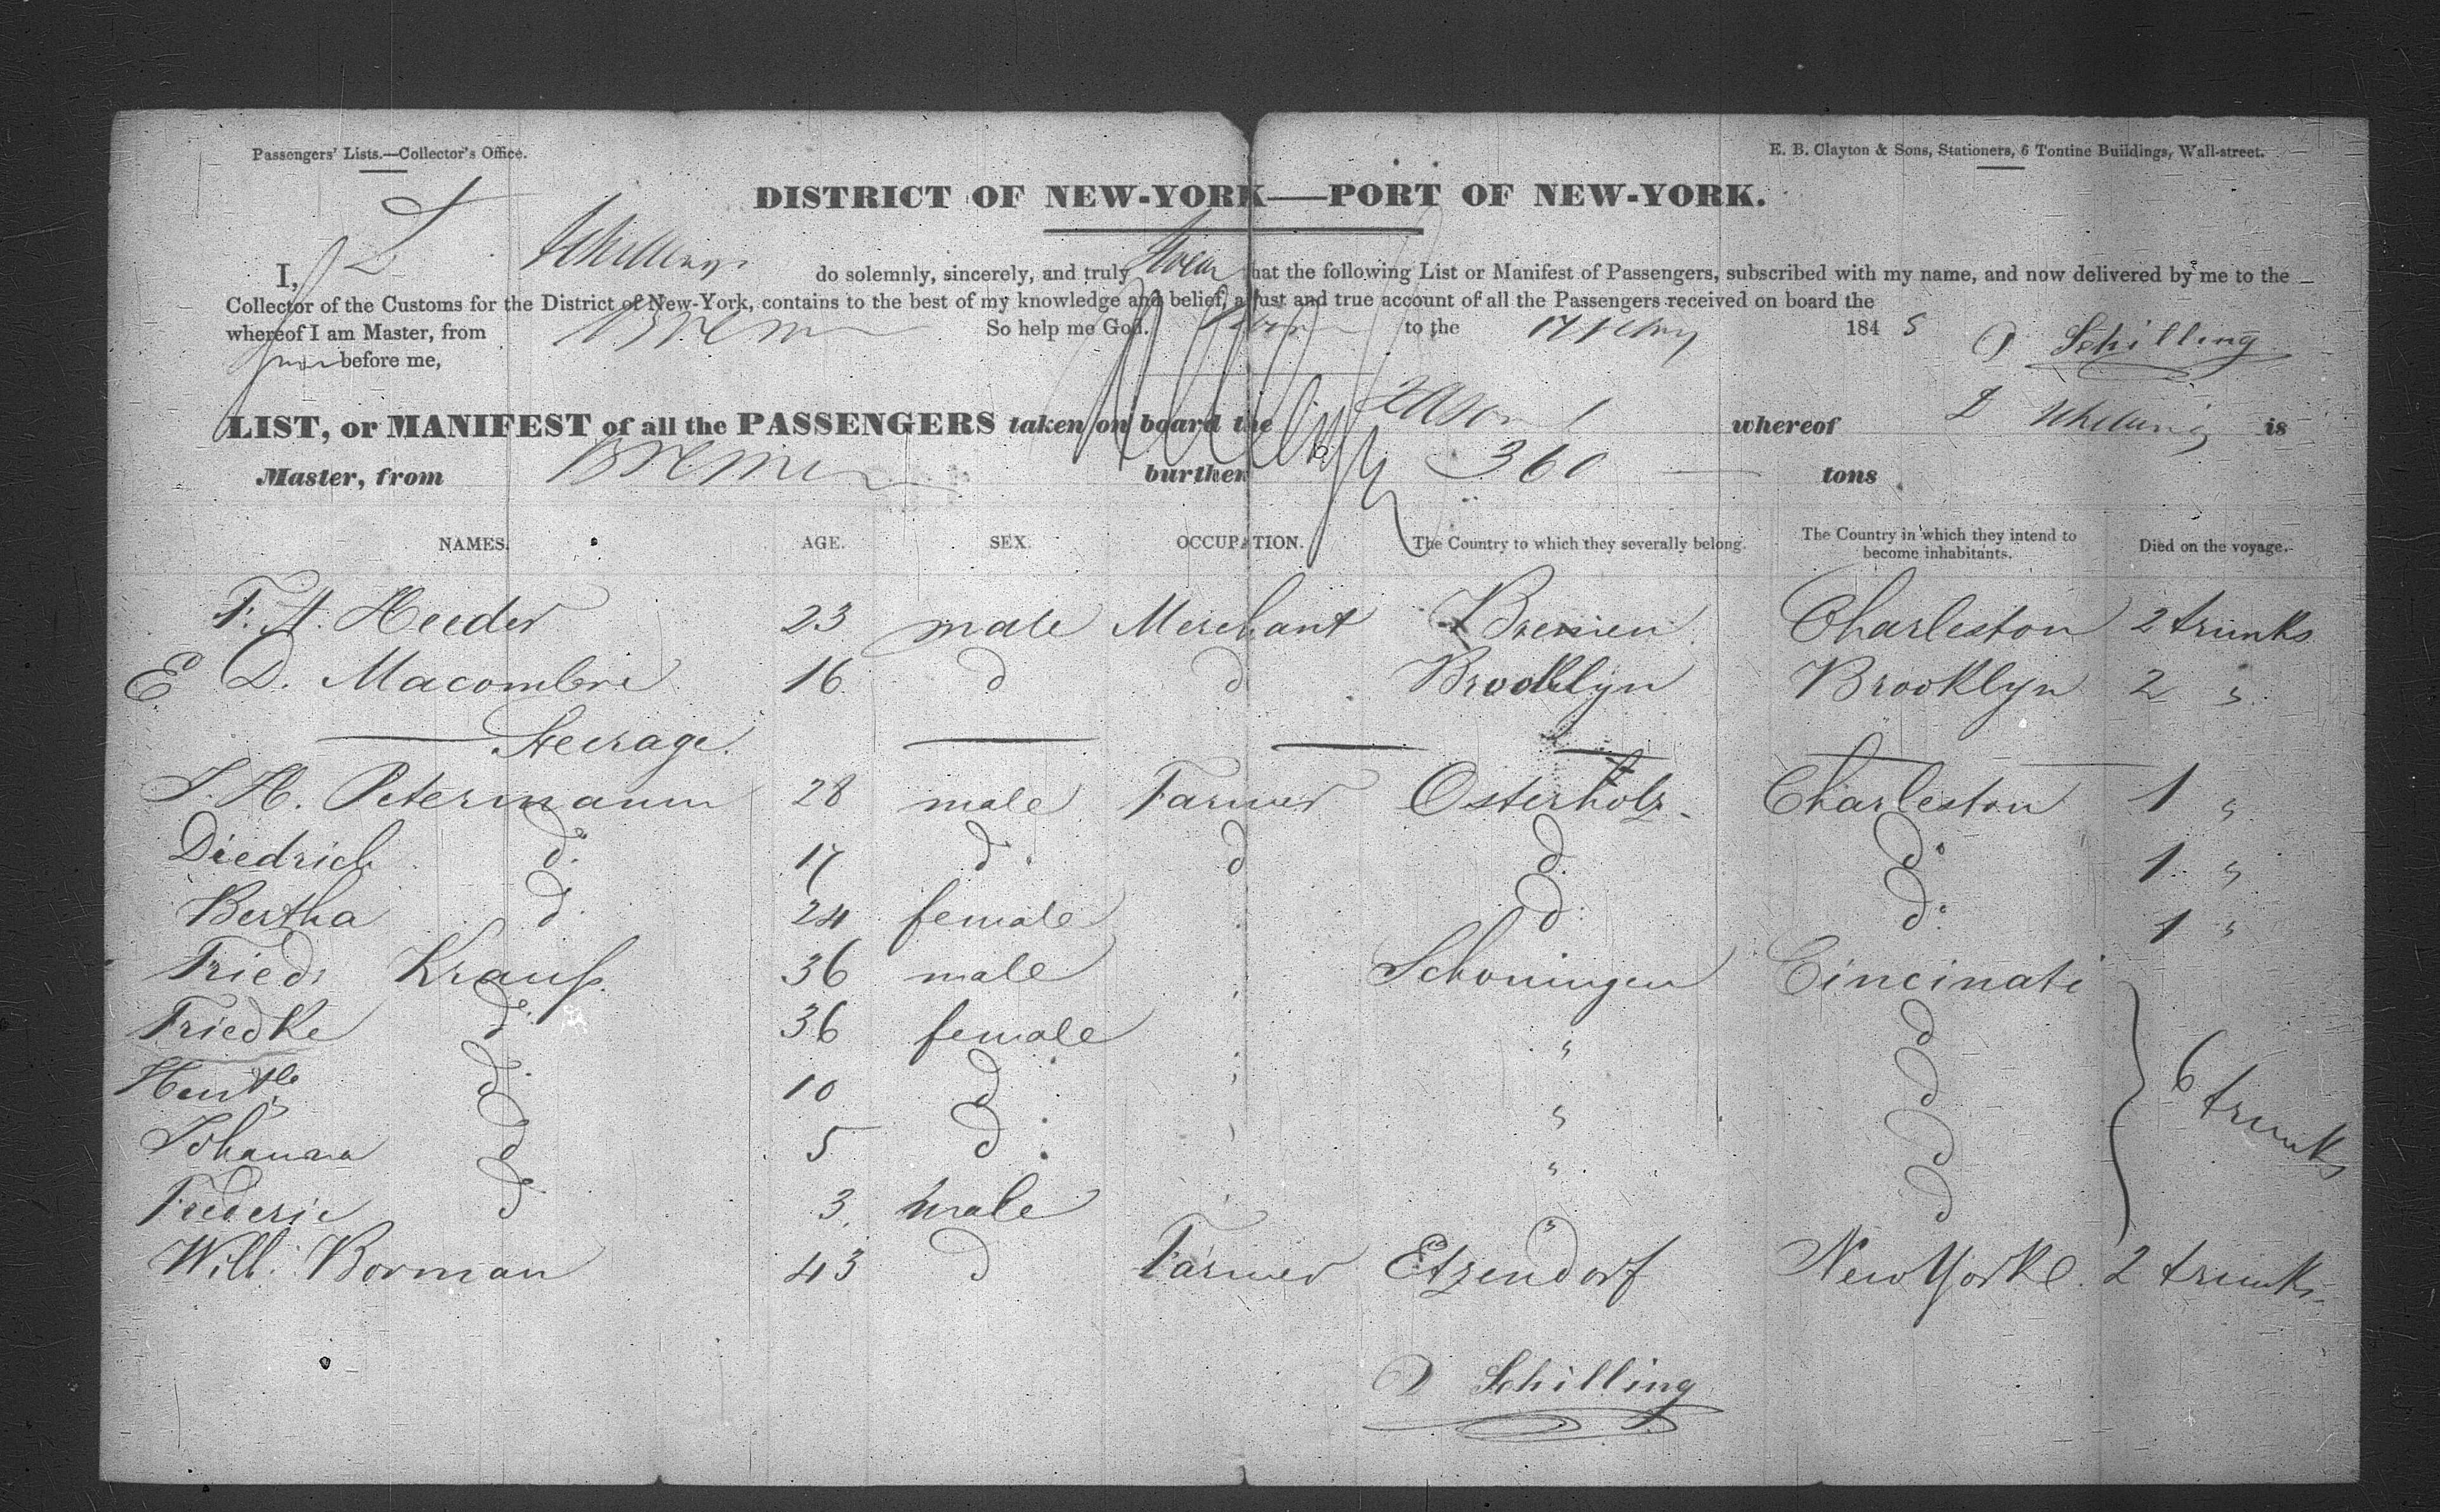 Passengers' Lists.—Collector's Office.
E. B. Clayton & Sons, Stationers, 6 Tontine Buildings, Wall-street.
DISTRICT OF NEW-YORK—PORT OF NEW-YORK.
I, D Schilling do solemnly, sincerely, and truly swear that the following List or Manifest of Passengers, subscribed with my name, and now delivered by me to the
Collector of the Customs for the District of New-York, contains to the best of my knowledge and belief, a just and true account of all the Passengers received on board the
whereof I am Master, from Bremen So help me God.
Sworn to the 17 184 5 D Schilling
before me,
LIST, or MANIFEST of all the PASSENGERS taken on board the whereof D Schilling is
Master, from Bremen burthen 360 tons
NAMES. AGE. SEX. OCCUPATION. The Country to which they severally belong. The Country in which they intend to become inhabitants. Died on the voyage.
F. A. Heeder 23 male Merchant Bremen Charleston 2 trunks
E D. Macombre 16 d d Brooklyn Brooklyn 2 "
Steerage.
J. H. Petermann 28 male Farmer Osterholz. Charleston 1 "
Diedrich do. 17 d. d d. do 1 "
Bertha d. 24 female d. do 1 "
Friedr Krauß. 36 male Schoningen Cincinati
Friedke do. 36 female " d
d. 10 d " d 6 trunks
Johanna d 5 d " d
Frederic d 3. male " d
Will. Borman 43 d Farmer Etzendorf New Yorke. 2 trunks.
D Schilling